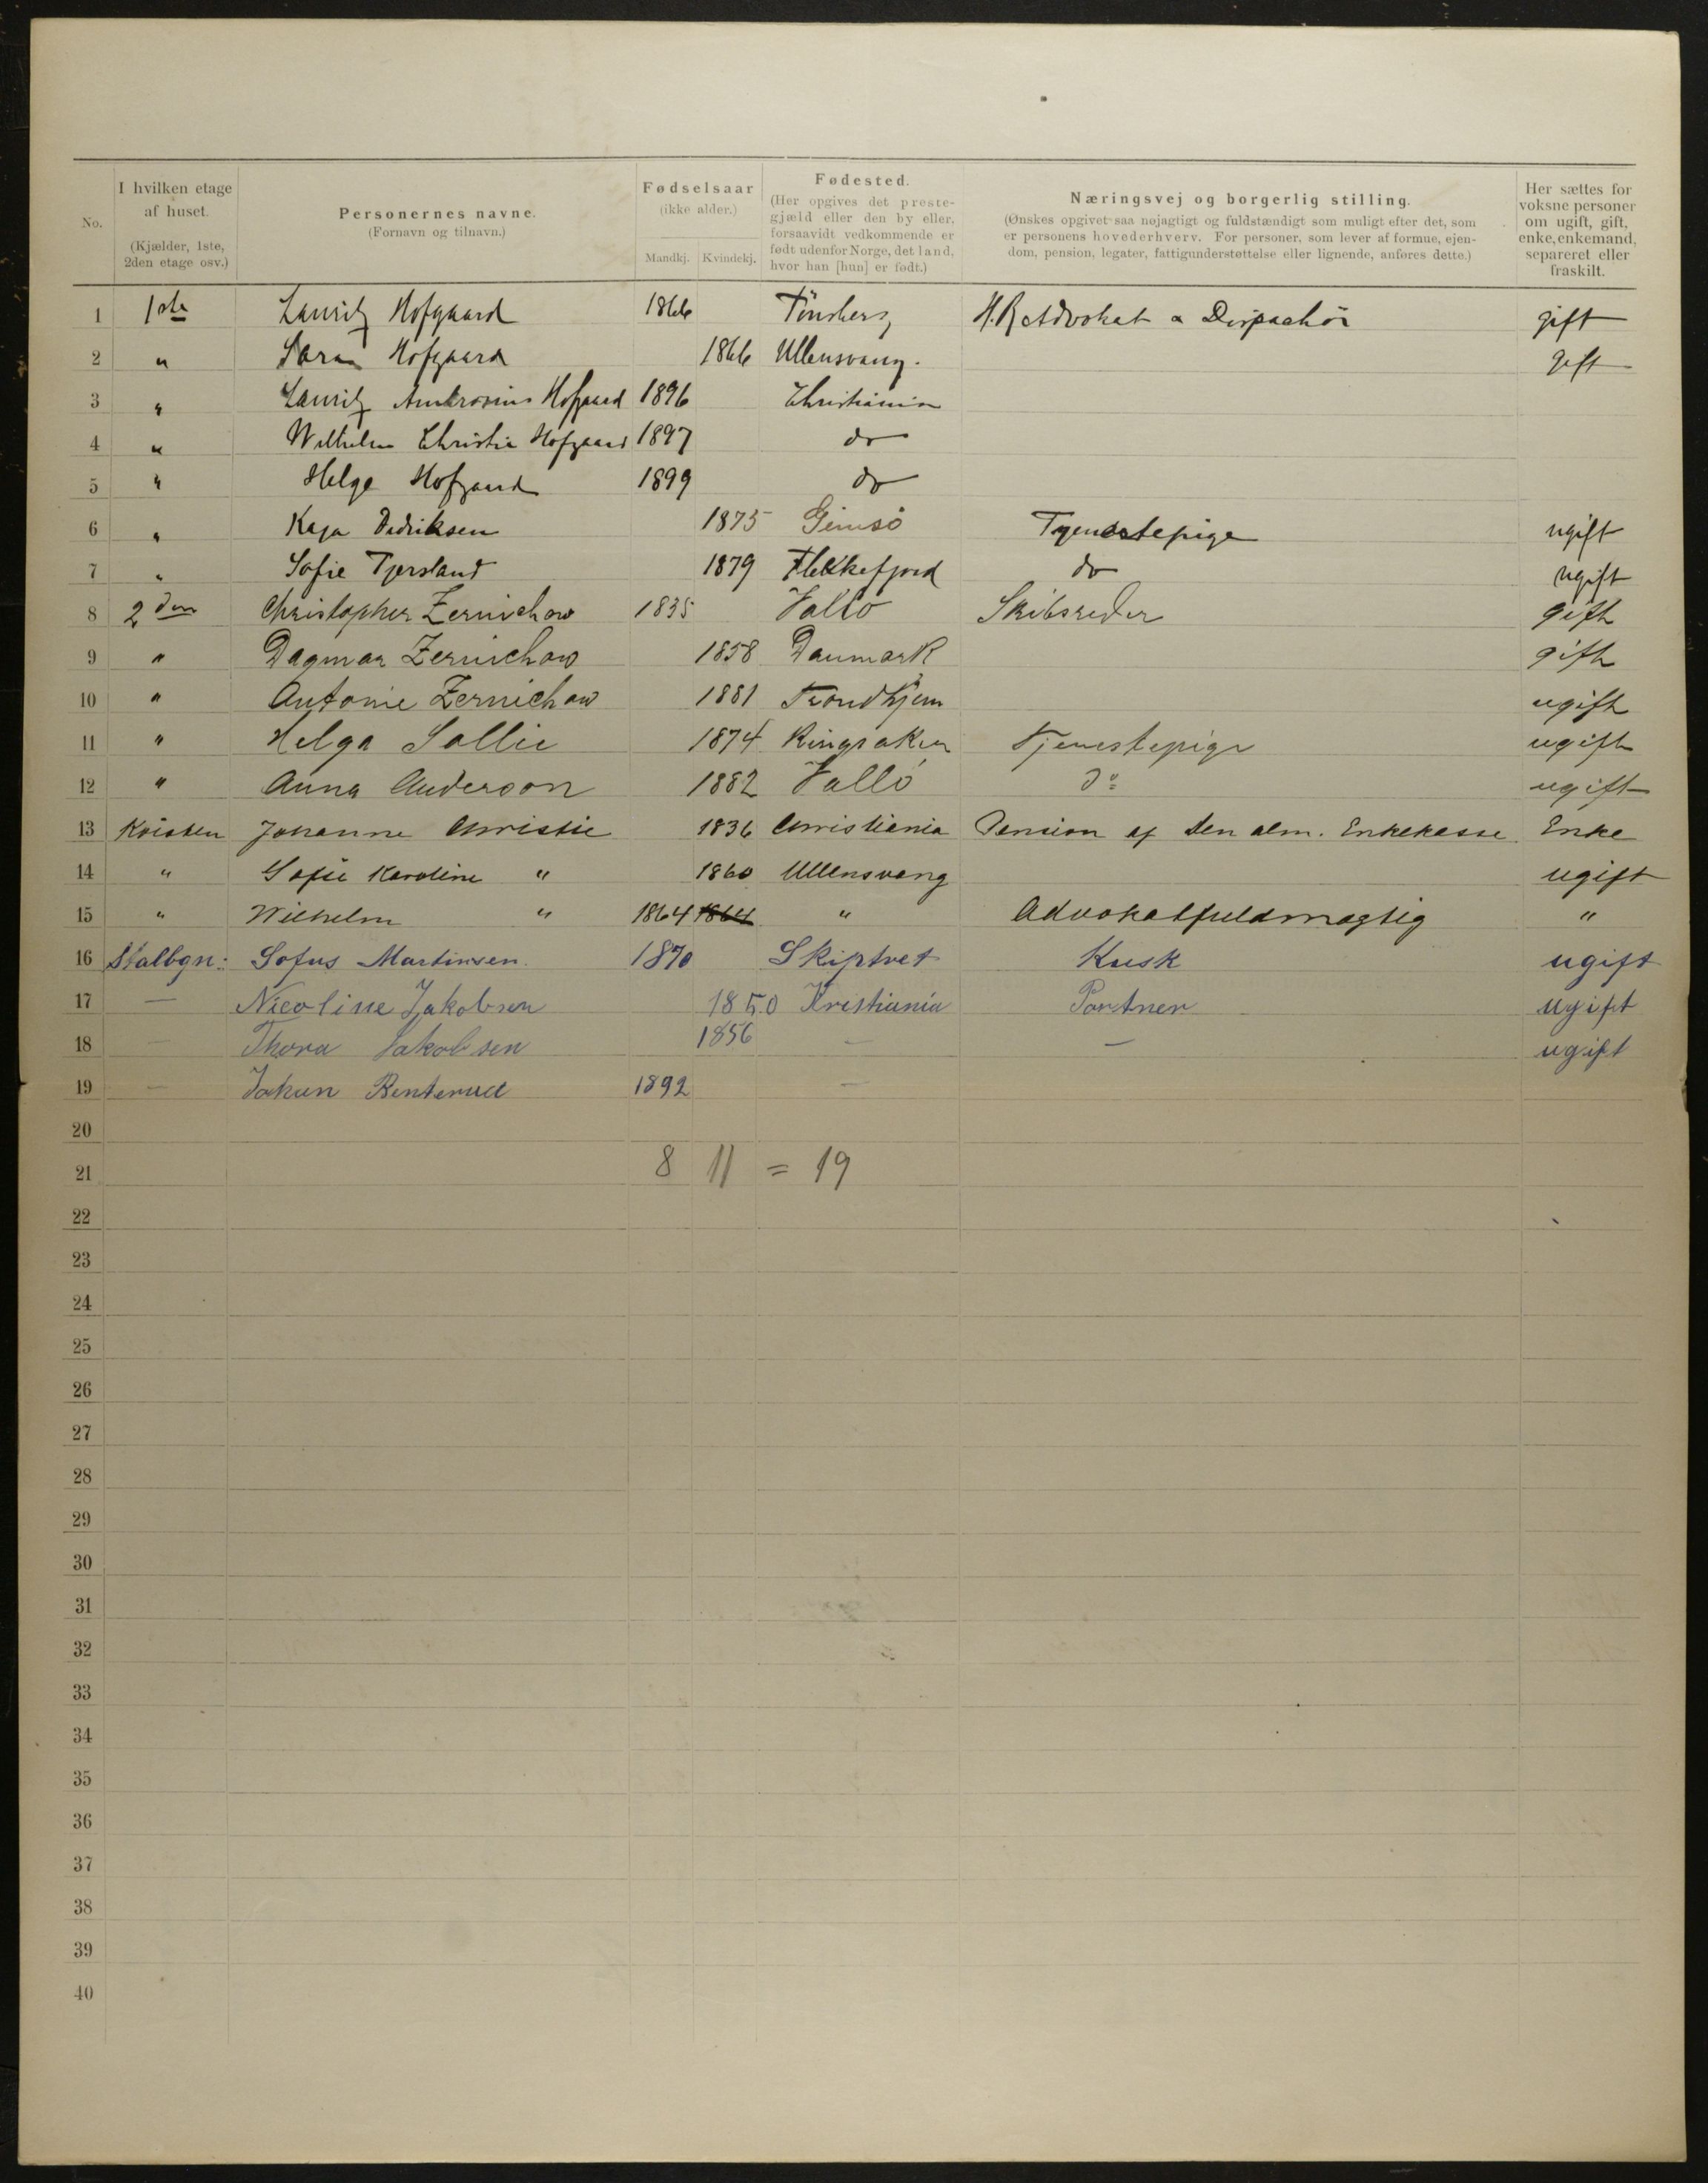 No.
I hvilken etage af huset. (Kjælder, 1ste, 2den etage osv.)
Personernes navne. (Fornavn og tilnavn.)
Fødselsaar (ikke alder.) Mandkj. Kvindekj.
Fødested. (Her opgives det prestegjæld eller den by eller, forsaavidt vedkommende er født udenfor Norge, det land, hvor han [hun] er født.)
Næringsvej og borgerlig stilling. (Ønskes opgivet saa nøjagtigt og fuldstændigt som muligt efter det, som er personens hovederhverv. For personer, som lever af formue, ejendom, pension, legater, fattigunderstøttelse eller lignende, anføres dette.)
Her sættes for voksne personer om ugift, gift, enke, enkemand, separeret eller fraskilt.
1 1ste Lauritz Hofgaard 1866 Tönsberg H.R Advokat & Dispachör gift
2 " Sara Hofgaard 1866 Ullensvang. gift
3 " Lauritz Ambrosius Hofgaard 1896 Christiania
4 " Wilhelm Christie Hofgaard 1897 do
5 " Helge Hofgaard 1899 do
6 " Kaja Dedriksen 1875 Gimsö Tjenestepige ugift
7 " Sofie Tjersland 1879 Flekkefjord do ugift
8 2den Christopher Zernichow 1835 Vallö Skibsreder gift
9 " Dagmar Zernichow 1858 Danmark gift
10 " Antonie Zernichow 1881 Trondhjem ugift
11 " Helga Sollie 1874 Ringsaker Tjenestepige ugift
12 " Anna Anderson 1882 Vallö do ugift
13 Kvisten Johanne Christie 1836 Christiania Pension af den alm. Enkekasse Enke
14 " Sofie Karoline " 1860 Ullensvang ugift
15 " Wilhelm " 1864 1864 " Advokatfuldmægtig "
16 Stalbgn: Sofus Martinsen. 1870 Skiptvet Kusk ugift
17 — Nicoline Jakobsen 1850 Kristiania Portner ugift
18 — Thora Jakobsen 1856 — — ugift
19 — Jakun Benterud 1892 —
20
21 8 11 = 19
22
23
24
25
26
27
28
29
30
31
32
33
34
35
36
37
38
39
40